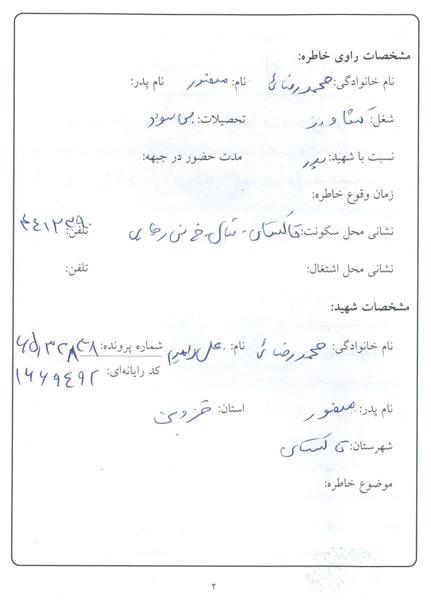 مشخصات راوی خاطره:
نام خانوادگی: محمدرضائی نام: صفدر نام پدر:
شغل: کشاورز تحصیلات: بی سواد
نسبت با شهید: پدر مدت حضور در جبهه:
زمان وقوع خاطره:
نشانی محل سکونت: تاکستان - تلفن:
نشانی محل اشتغال: تلفن:
مشخصات شهید:
نام خانوادگی: محمدرضائی نام: علی شماره پرونده:
کد رایانه‌ای: ۱۶۶۹۴۹۲
نام پدر: صفدر استان: قزوین
شهرستان: تاکستان
موضوع خاطره:
۲